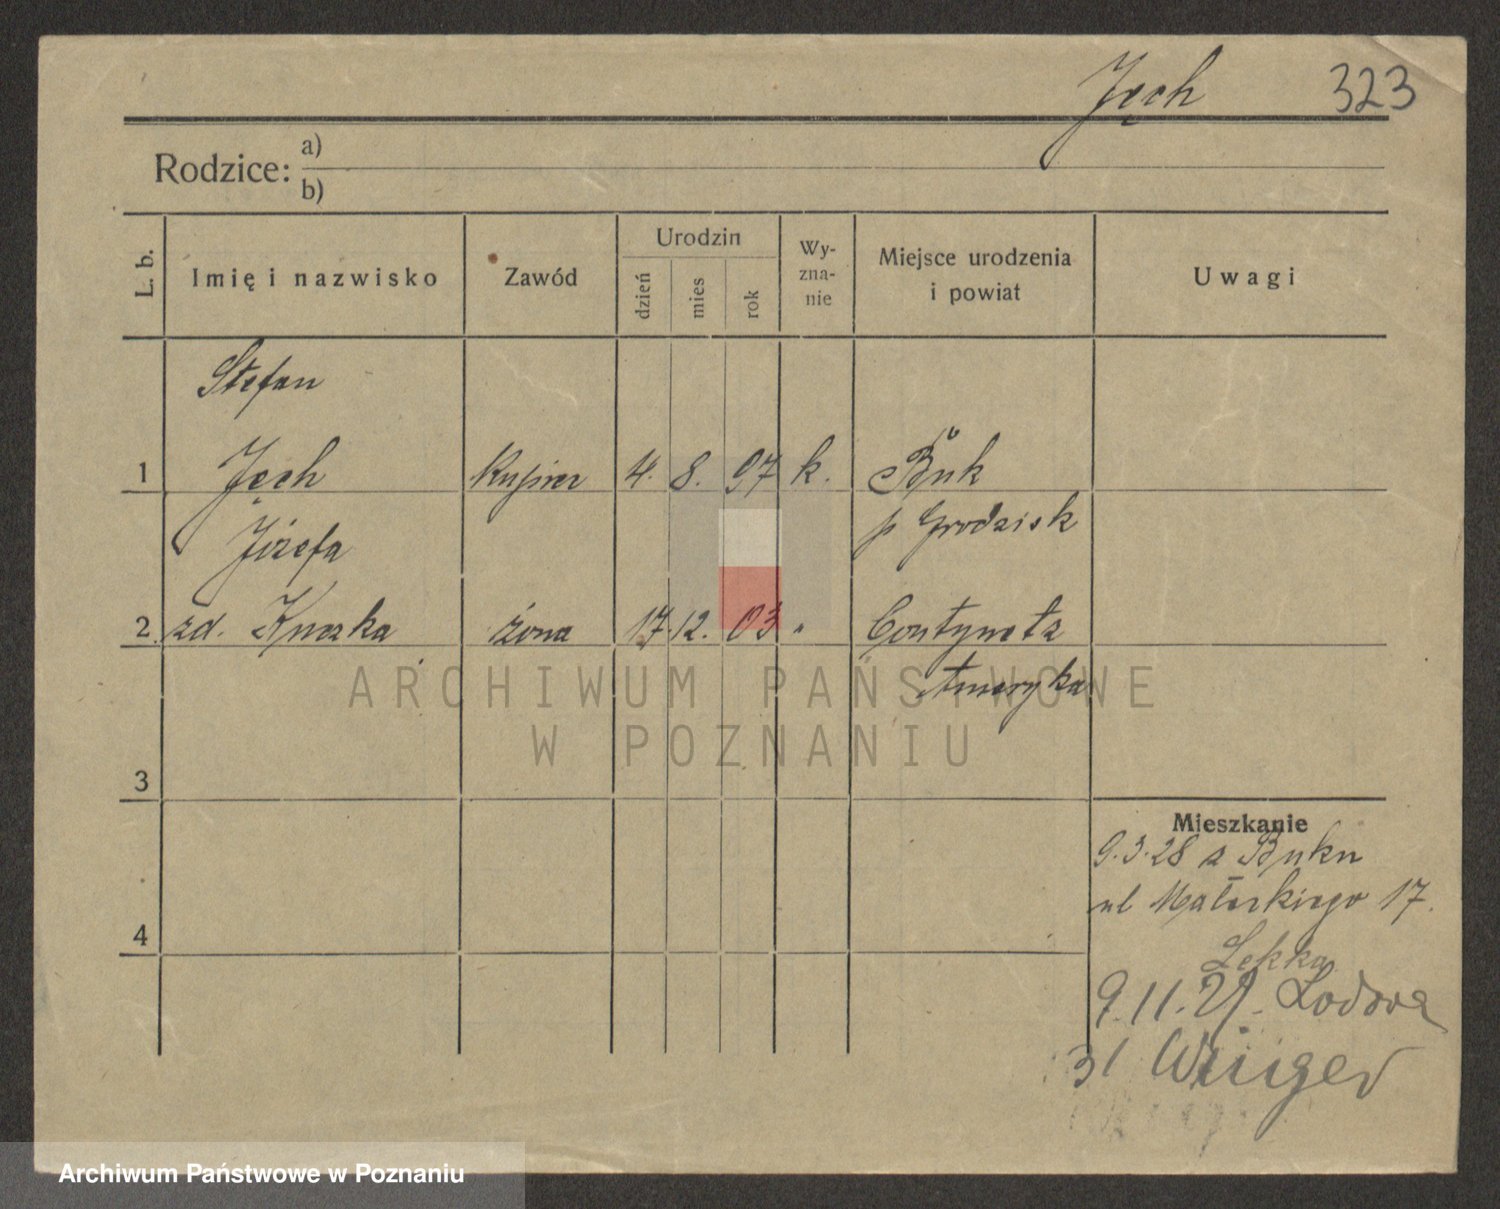 Jęch 323
Rodzice: a)
b)
L. b. Imię i nazwisko Zawód Urodzin dzień mies rok Wy-zna-nie Miejsce urodzenia i powiat Uwagi
Stefan
1 Jęch Kupiec 4. 8. 97 k. Buk
p Grodzisk
Józefa
2 zd. żona 17. 12. 03 "
Ameryka
ARCHIWUM PAŃSTWOWE
W POZNANIU
3
Mieszkanie
9.3.28 z Buku
ul 17.
4
9.11. Lodowa
31
Archiwum Państwowe w Poznaniu